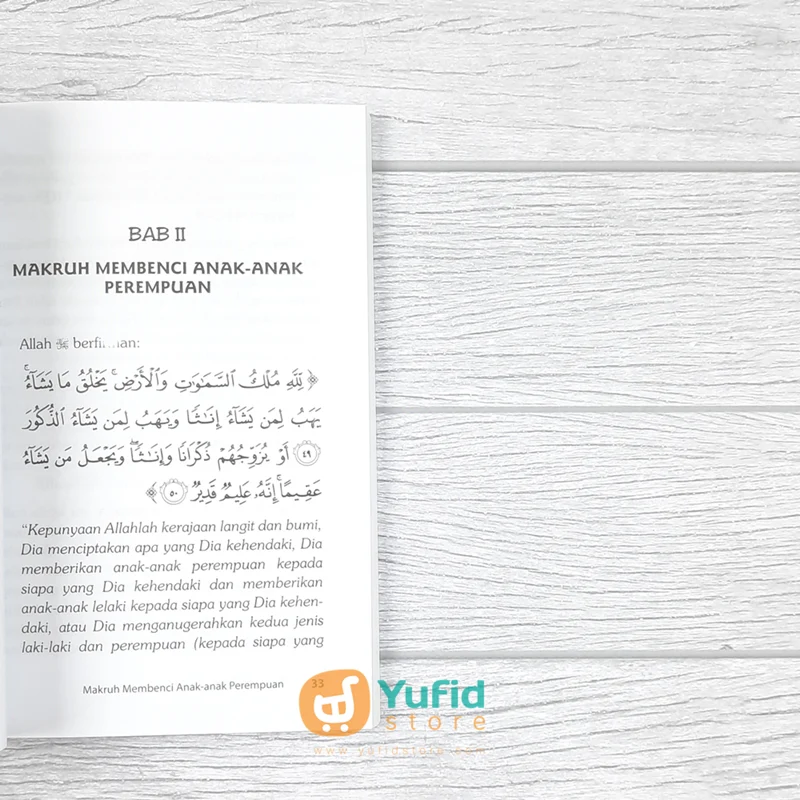 BAB II
MAKRUH MEMBENCI ANAK-ANAK
PEREMPUAN
Allah ﷻ berfirman:
﴿ لِلَّهِ مُلْكُ السَّمَٰوَٰتِ وَالْأَرْضِ ۚ يَخْلُقُ مَا يَشَآءُ ۚ
يَهَبُ لِمَن يَشَآءُ إِنَٰثًا وَيَهَبُ لِمَن يَشَآءُ الذُّكُورَ
﴿٤٩﴾ أَوْ يُزَوِّجُهُمْ ذُكْرَانًا وَإِنَٰثًا ۖ وَيَجْعَلُ مَن يَشَآءُ
عَقِيمًا ۚ إِنَّهُۥ عَلِيمٌ قَدِيرٌ ﴿٥٠﴾ ﴾
“Kepunyaan Allahlah kerajaan langit dan bumi,
Dia menciptakan apa yang Dia kehendaki, Dia
memberikan anak-anak perempuan kepada
siapa yang Dia kehendaki dan memberikan
anak-anak lelaki kepada siapa yang Dia kehen-
daki, atau Dia menganugerahkan kedua jenis
laki-laki dan perempuan (kepada siapa yang
Makruh Membenci Anak-anak Perempuan 33
Yufid
store
www.yufidstore.com